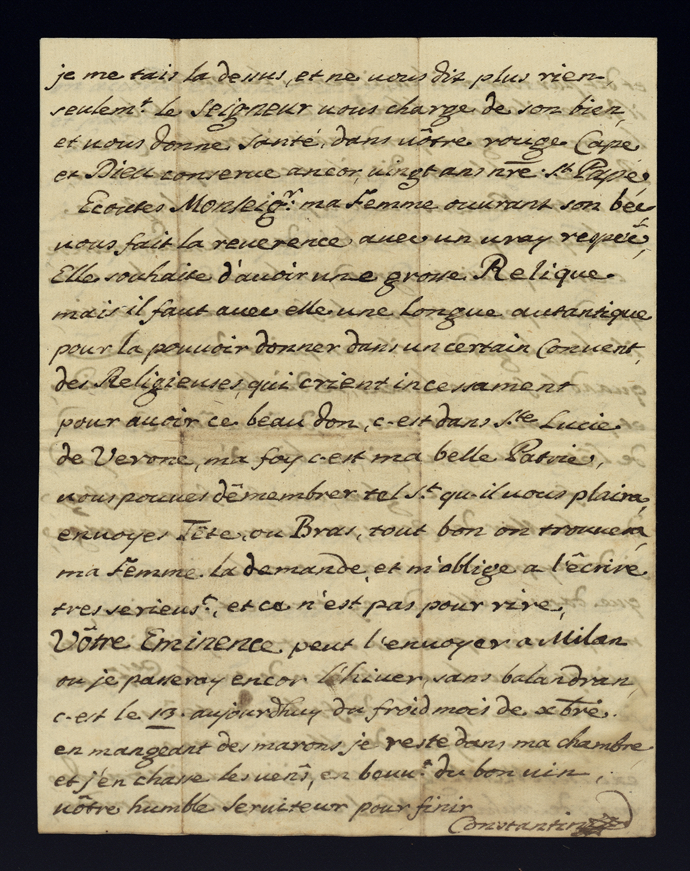 je me tais la dessus, et ne vous dit plus rien
seulem.t le Seigneur vous charge de son bien,
et vous donne santé, dans vôtre rouge Cape
et Dieu conserve ancor, vingt ans nr̃e St. Pape,
Ecoutes Monseig.r ma Femme ouvrant son bec
vous fait la reverence avec un vray respec.t,
Elle souhaite d'avoir une grosse Relique
mais il faut avec elle une longue autantique
pour la pouvoir donner dans un certain Convent,
des Religieuses, qui crient incessament
pour avoir ce beau don, c-est dans S.te Lucie
de Verone, ma foy c-est ma belle Patrie,
vous pouves dêmembrer tel S.t qu-il vous plaira,
envoyes Tête, ou Bras, tout bon on trouvera,
ma Femme la demande, et m'oblige a l'êcrire
tres serieus.t, et ca n'est pas pour rire,
Vôtre Eminence peut l'envoyer a Milan
ou je passeray encor l'hiver, sans balandran,
c-est le 13. aujourdhuy du froid mois de xbre.
en mangeant des marons je reste dans ma chambre
et j'en chasse les vens, en beuv.t du bon vin,
vôtre humble serviteur pour finir
Constantin